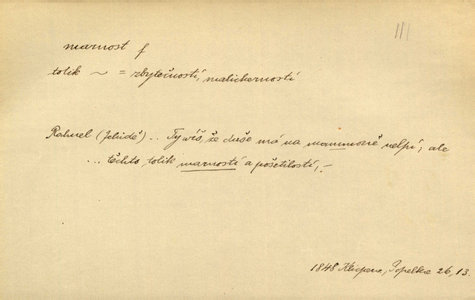 marnost f
tolik ~ = zbytečností, malicherností
Rahuel (Jehudě) .. Ty víš, že duše má na mammoně nelpí, ale
... těchto tolik marností a pošetilostí, –
1848 Klicpera, Popelka 26, 13.